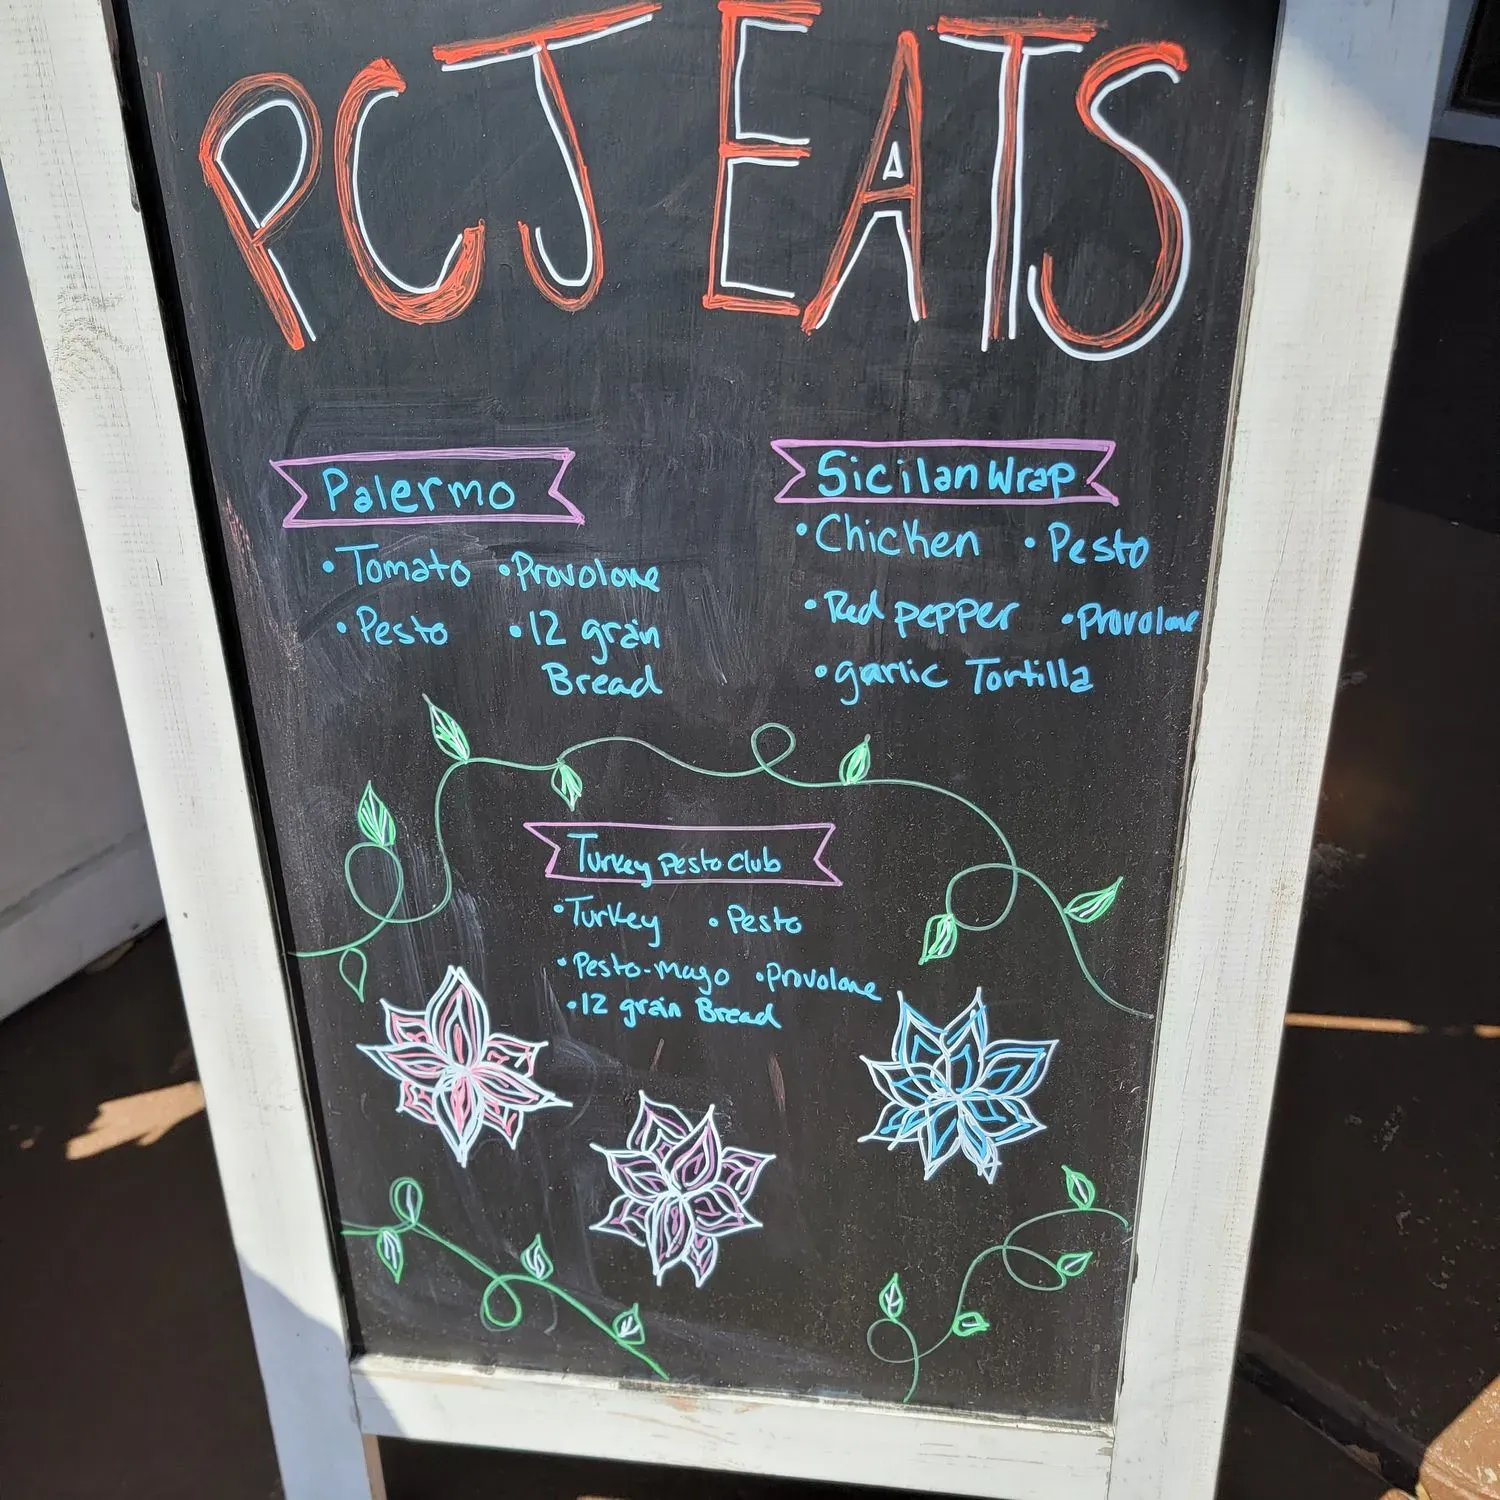 PCJ EATS
Palermo
• Tomato • Provolone
• Pesto • 12 grain
Bread
Sicilan Wrap
• Chicken • Pesto
• Red pepper • Provolone
• garlic Tortilla
Turkey Pesto Club
• Turkey • Pesto
• Pesto-mayo • Provolone
• 12 grain Bread